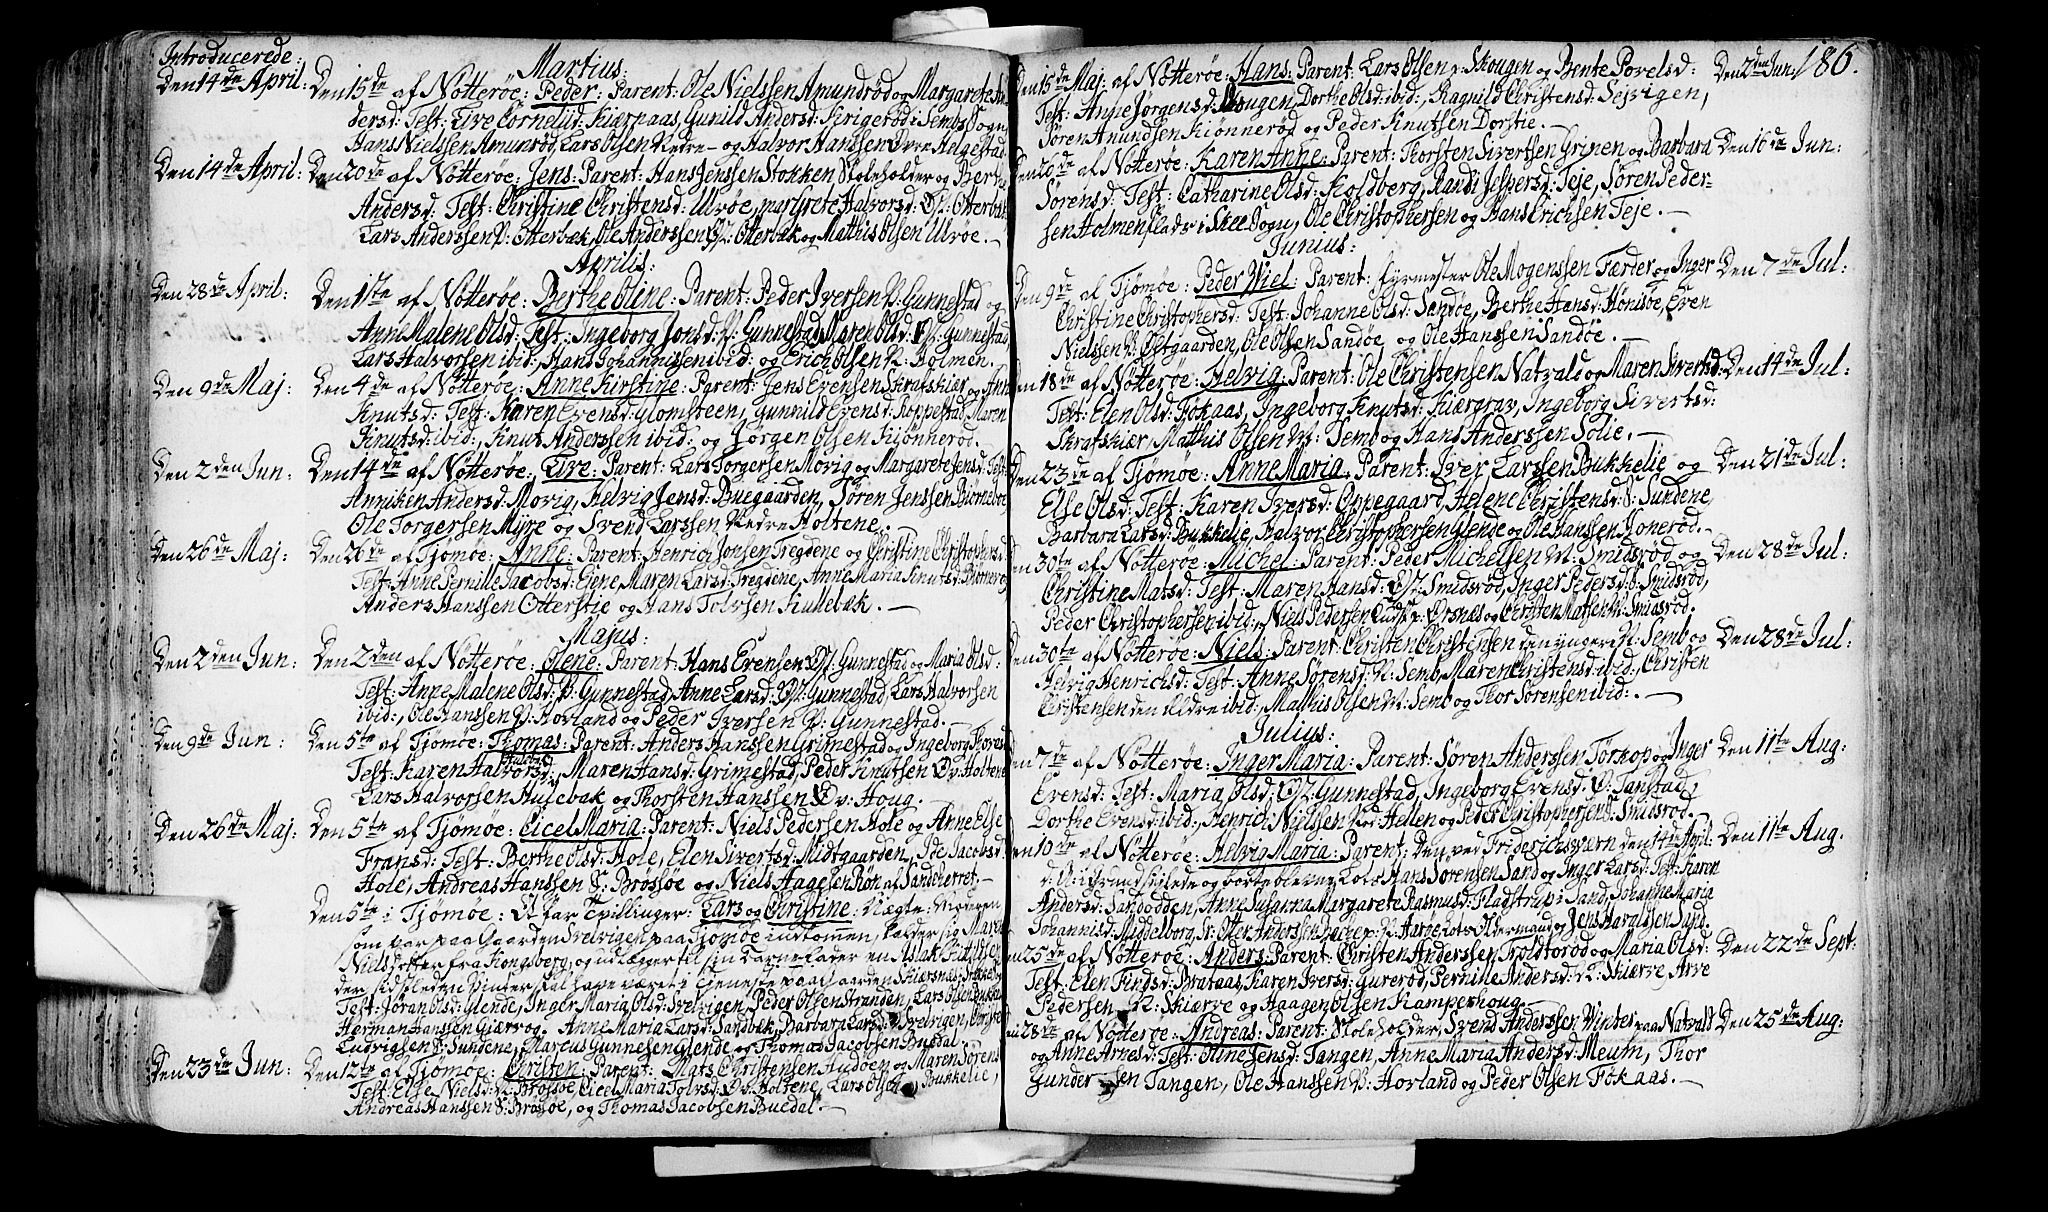 Introducerede:
Martius:
Den 14de April: Den 15de af Nötteröe: Peder: Parent: Ole Nielssen Amundröd og Margarete An-
dersd: Test: Live Cornelid: Kiærnaas, Gunild Andersd: Krigeröd i Sembs Sogn
Hans Nielssen Amunröd, Lars Olsen Nedre- og Halvor Hanssen Övre Helgestad.
Den 14de April: Den 20de af Nötteröe: Jens: Parent: Hans Jenssen Stokken Skoleholder og Berthe
Andersd: Test: Christine Christensd: Ulvöe, Margrete Halvorsd: Otterbæk
Lars Anderssen V: Otterbæk, Ole Anderssen Otterbæk og Mathis Olsen Ulvöe. —
Aprilis:
Den 28de April: Den 1ste af Nötteröe: Berthe Oline: Parent: Peder Iversen V: Gunnestad og
Anne Malene Olsd: Test: Ingeborg Jonsd: V: Gunnestad, Maren Olsd: Gunnestad,
Lars Halvorsen ibid: Hans Johannissen ibid: og Erich Olsen N: Holmen.
Den 9de Maj: Den 4de af Nötteröe: Anne Kirstine: Parent: Jens Evensen Skratskiær og Anne
Knutsd: Test: Karen Evensd: Glomsteen, Gunnild Evensd: Roppestad, Maren
Knutsd: ibid:, Knut Anderssen ibid: og Jörgen Olsen Kiönneröd.
Den 2den Jun: Den 14de af Nötteröe: Live: Parent: Lars Torgersen Movig og Margarete Jensd: Test:
Anniken Andersd: Movig, Helvig Jensd: Buegaarden, Sören Jenssen Biörneboe
Ole Torgersen Myre og Svend Larssen Nedre Holtene. —
Den 26de Maj: Den 26de af Tjömöe: Anne: Parent: Henrich Jonsen Tregdene og Christine Christophersd:
Test: Anne Pernille Jacobsd: Eiene, Maren Larsd: Tregdene, Anne Maria Knutsd:
Anders Hanssen Otterstie og Hans Tolvsen Kullebæk. —
Majus:
Den 2den Jun: Den 2den af Nötteröe: Olene: Parent: Hans Evensen Gunnestad og Maria Olsd:
Test: Anne Malene Olsd: V: Gunnestad, Anne Larsd: Gunnestad, Lars Halvorsen
ibid:, Ole Hanssen V: Hovland og Peder Iversen V: Gunnestad. —
Den 9de Jun: Den 5te af Tjömöe: Thomas: Parent: Anders Hanssen Grimestad og Ingeborg Thoresd
Test: Karen Halvorsd: Hulebak, Maren Hansd: Grimestad, Peder Knutsen Öv: Holtene
Lars Halvorsen Hulebak og Thorsten Hanssen Öv: Houg.
Den 26de Maj: Den 5te af Tjömöe: Cicel Maria: Parent: Niels Pedersen Hole og Anne Else
Fransd: Test: Berthe Olsd: Hole, Elen Sivertsd: Midtgaarden, Ide Jacobsd:
Hole, Andreas Hanssen S: Brössöe og Niels Haagesen Røn af Sandeherret. —
Den 5te i Tjömöe: Et Par Tvillinger: Lars og Christine: Uægte: Moderen
som var paa Gaarden Svelvigen paa Tjömöe indkommen, kalder sig Maren
Nielsdotter fra Kongsberg, og udlægger til sin Barnefader en Aslak
der sidstleden Vinter skal have været i Tieneste paa Gaarden Skiærsnæs
Test: Jöran Olsd: Glende, Inger Maria Olsd: Svelvigen, Peder Olsen Stranden, Lars Olsen Bukkelie
Herman Hanssen Giærv og Anne Maria Larsd: Sandbæk, Barbara Larsd: Svelvigen, Christen
Ludvigsen S: Sundene, Marcus Gunnesen Glende og Thomas Jacobsen Buedal
Den 23de Jun: Den 12te af Tjömöe: Christen: Parent: Mats Christensen Hudöen og Maren Sörensd:
Test: Else Nielsd: N: Brössöe, Cicel Maria Tolvsd: Öv: Holtene, Lars Olsen Bukkelie,
Andreas Hanssen S: Brössöe, og Thomas Jacobsen Buedal. —
186.
Den 15de Maj: af Nötteröe: Hans: Parent: Lars Olsen Skougen og Bente Povelsd: Den 2den Jun:
Test: Anne Jörgensd: Skougen, Dorthe Olsd: ibid:, Ragnild Christensd: Sejvigen,
Sören Anundsen Kiönneröd og Peder Knutsen Dorstie. —
Den 26de af Nötteröe: Karen Anne: Parent: Thorsten Sivertsen Grinen og Barbara Den 16de Jun:
Sörensd: Test: Catharine Olsd: Koldberg, Randi Jespersd: Teje, Sören Peder-
sen Holmenflads i Skee Sogn, Ole Christophersen og Hans Erichsen Teje. —
Junius:
Den 9de af Tjömöe: Peder Wiel: Parent: Fyrmester Ole Mogenssen Færder og Inger Den 7de Jul:
Christine Christophersd: Test: Johanne Olsd: Sandöe, Berthe Hansd: Hönisöe, Even
Nielssen V: Östgaarden, Ole Olsen Sandöe og Ole Hanssen Sandöe. —
Den 18de af Nötteröe: Helvig: Parent: Ole Christensen Natvald og Maren Sivertsd: Den 14de Jul:
Test: Elen Olsd: Fökaas, Ingeborg Knutsd: Kiærgrav, Ingeborg Sivertsd:
Skratskiær, Matthis Olsen N: Semb og Hans Anderssen Solie. —
Den 23de af Tjömöe: Anne Maria: Parent: Iver Larssen Bukkelie og Den 21de Jul:
Else Olsd: Test: Karen Iversd: Oppegaard, Helene Christensd: S: Sundene,
Barbara Larsd: Bukkelie, Halvor Christophersen Glende og Ole Hanssen Soneröd. —
Den 30te af Nötteröe: Michel: Parent: Peder Michelssen N: Smidsröd og Den 28de Jul:
Christine Matsd: Test: Maren Hansd: Smidsröd, Inger Pedersd: S: Smidsröd,
Peder Christophersen ibid:, Niels Pedersen Orsnæs og Christen Matsen N: Smidsröd.
Den 30te af Nötteröe: Niels: Parent: Christen Christensen den yngere N: Semb og Den 28de Jul:
Helvig Henrichsd: Test: Anne Sörensd: N: Semb, Maren Christensd: ibid:, Christen
Christensen den Eldre ibid:, Mathis Olsen N: Semb og Thor Sörensen ibid:. —
Julius:
Den 7de af Nötteröe: Inger Maria: Parent: Sören Anderssen Törkop og Inger Den 11te Aug:
Evensd: Test: Maria Olsd: Gunnestad, Ingeborg Evensd: Ö: Tanstad,
Dorthe Evensd: ibid:, Henrich Nielssen Hellen og Peder Christophersen S: Smidsröd.
Den 10de af Nötteröe: Helvig Maria: Parent: Den ved Friderichsværn den 14de April: Den 11te Aug.
d: A: i Grund skibede og borteblevne Lots Hans Sörensen Sand og Inger Larsd: Test: Karen
Andersd: Sandodden, Anne Susanna Margarete Rasmusd: Fladstrup i Sand, Johanne Maria
Johannisd: Middelborg, Sr. Otter Anderssen Bache p: N: Aaröe Lots Oldermand og Jens Haraldssen Sand.
Den 25de af Nötteröe: Anders: Parent: Christen Anderssen Troldtoröd og Maria Olsd: Den 22de Sept:
Test: Elen Findsd: Brataas, Karen Iversd: Gureröd, Pernille Andersd: N: Skierve, Arve
Pedersen N: Skierve og Haagen Olsen Kamperhoug. —
Den 28de af Nötteröe: Andreas: Parent: Skoleholder Svend Anderssen Winter paa Natvald Den 25de Aug:
og Anne Arnesd: Test: Oline Jensd: Tangen, Anne Maria Andersd: Meum, Thor
Gundersen Tangen, Ole Hanssen V: Hovland og Peder Olsen Fökaas. —